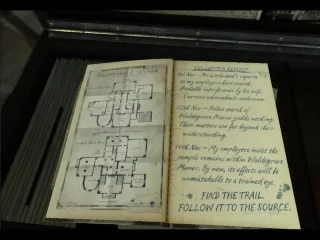 WALDEGRAVE MANOR
COLLECTED REPORT
1st Nov – Mr Lockwood's reports
to my employers have ceased.
Probable interference by his wife.
Current whereabouts unknown.
12th Nov – Police search of
Waldegrave Manor yields nothing.
These matters are far beyond their
understanding.
17th Nov – My employers insist the
sample remains within Waldegrave
Manor. By now, its effects will be
unmistakable to a trained eye.
FIND THE TRAIL.
FOLLOW IT TO THE SOURCE.